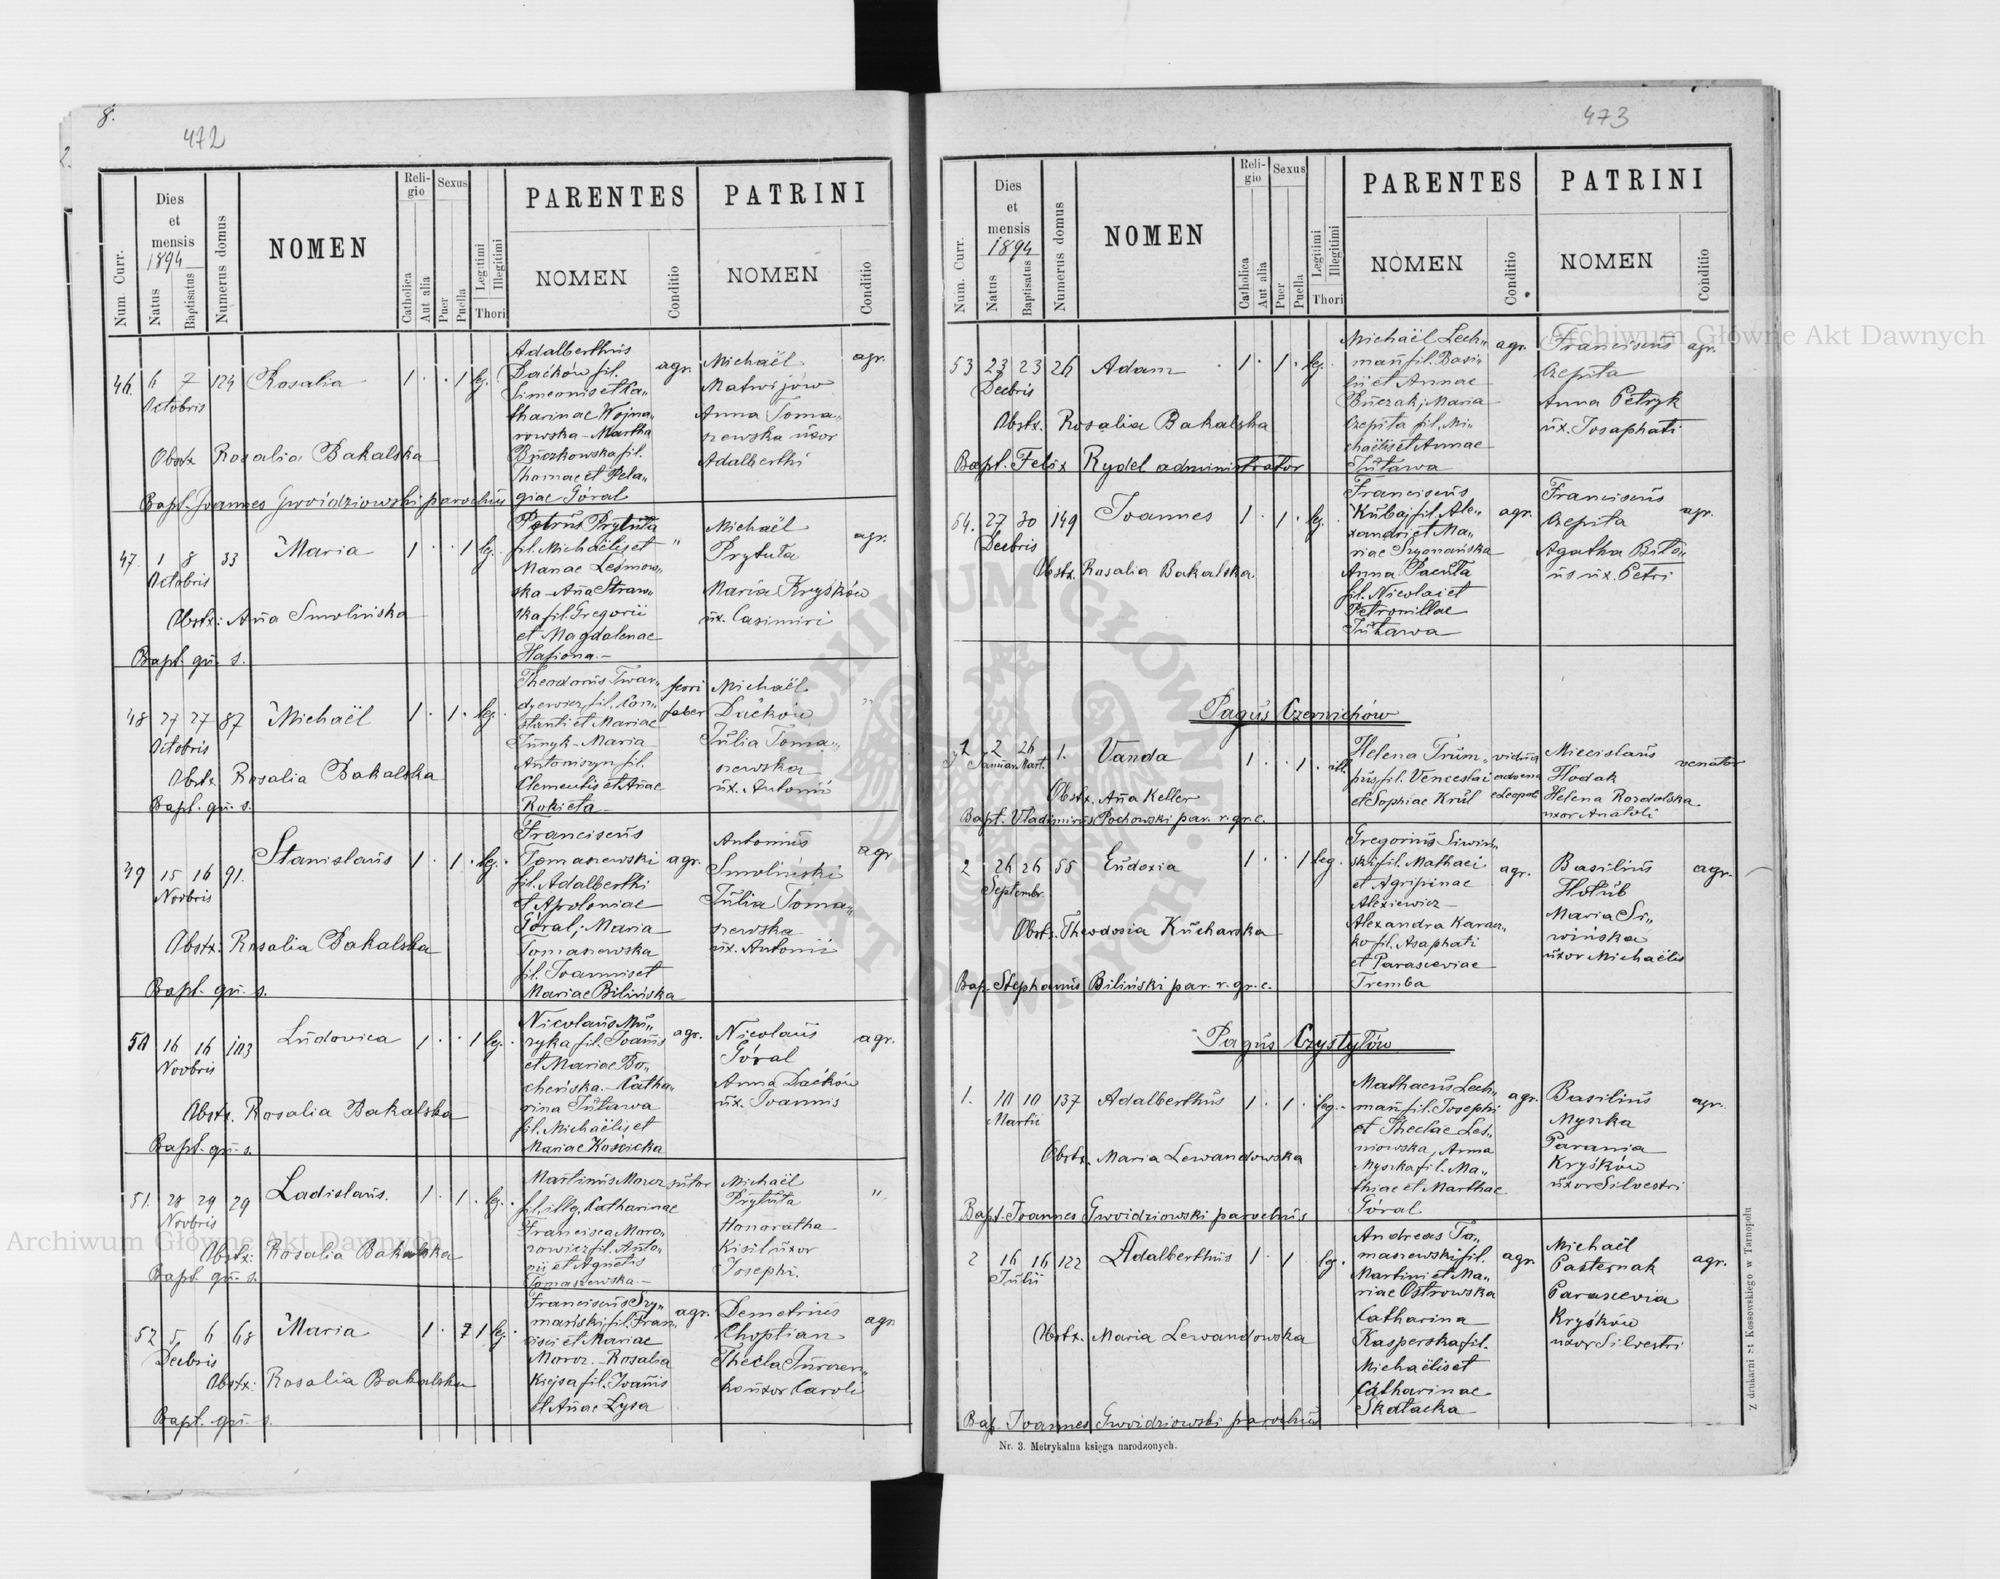 8.
472
Num. Curr.
Dies et mensis
1894
Natus
Baptisatus
Numerus domus
NOMEN
Religio
Catholica
Aut alia
Sexus
Puer
Puella
Legitimi
Illegitimi
Thori
PARENTES
NOMEN
Conditio
PATRINI
NOMEN
Conditio
46. 6 7 124 Rosalia 1 . . 1 leg.
Octobris
Obstx Rosalia Bakalska
Bapt. Joannes Gwoidziowski parochus
Adalberthus
Daćków fil.
Simeonis et Ca-
tharinae Wojna-
rowska - Martha
Buczkowska fil.
Thomae et Pela-
giae Góral
agr.
Michaël
Matwijów
Anna Toma-
szewska uxor
Adalberthi
agr.
47. 1 8 33 Maria 1 . . 1 leg.
Octobris
Obstx: Aña Smolińska
Bapt. qu. s.
Petrus Prytuła
fil. Michaëlis et
Mariae Leśniow-
ska - Aña Straw-
ska fil. Gregorii
et Magdalenae
"
Michaël
Prytuła
Maria Kryśków
ux. Casimiri
agr.
48 27 27 87 Michaël 1 . 1 . leg.
Octobris
Obstx Rosalia Bakalska
Bapt. qu. s.
Theodorus Twar-
dyewicz, fil. Con-
stanti et Mariae
Juñyk - Maria
Antoniszyn fil.
Clementis et Añae
Rokieta
ferri
faber
Michaël
Daćków
Julia Toma-
szewska
ux. Antonii
"
49 15 16 91. Stanislaus 1 . 1 . leg.
Novbris
Obstx: Rosalia Bakalska
Bapt. qu. s.
Franciscus
Tomaszewski
fil. Adalberthi
et Apoloniae
Góral, Maria
Tomaszewska
fil. Joannis et
Mariae Bilińska
agr.
Antonius
Smoliński
Julia Toma-
szewska
ux. Antonii
agr
50 16 16 103 Ludovica 1 . . 1 leg.
Novbris
Obstx. Rosalia Bakalska
Bapt. qu. s.
Nicolaus Mu-
zyka fil. Joañis
et Mariae Bo-
cheńska. - Catha-
rina Jutawa
fil. Michaëlis et
Mariae Kościcka
agr.
Nicolaus
Góral
Anna Daćków
ux. Joannis
agr.
51. 28 29 29 Ladislaus. 1 . 1 . leg.
Novbris
Obstx: Rosalia Bakalska
Bapt. qu. s.
Martinus Moroz
fil. illg. Catharinae
Francisca Moro-
zowicz fil. Anto-
nii et Agnetis
Tomaszewska
sutor
Michaël
Prytuła
Honoratha
Kisil uxor
Josephi.
"
52 5 6 68 Maria 1 . 1 leg.
Decbris
Obstx: Rosalia Bakalska
Bapt. qu. s.
Franciscus Szy-
mański, fil. Fran-
cisci et Mariae
Moroz. - Rosalia
Kiejsa fil. Joañis
et Añae Łysa
agr.
Demetrius
Choptian
Thecla Jurczen-
ko uxor Caroli
agr
473
Num. Curr.
Dies et mensis
1894
Natus
Baptisatus
Numerus domus
NOMEN
Religio
Catholica
Aut alia
Sexus
Puer
Puella
Legitimi
Illegitimi
Thori
PARENTES
NOMEN
Conditio
PATRINI
NOMEN
Conditio
53 23 23 26 Adam 1 . 1 . leg.
Decbris
Obstx. Rosalia Bakalska
Bapt. Felix Rydel administrator
Michaël Lech-
mañ fil. Basi-
lii et Annae
Buczak; Maria
Czepita fil. Mi-
chaëlis et Annae
Jutawa
agr.
Franciscus
Czepita
Anna Petryk
ux. Josaphati
agr.
54. 27 30 149 Joannes 1 . 1 . leg.
Decbris
Obstx. Rosalia Bakalska
Franciscus
Kubaj, fil. Ale-
xandri et Ma-
riae Szymańska
Anna Pacuła
fil. Nicolai et
Petronillae
Jutawa
agr.
Franciscus
Czepita
Agatha Biło-
us ux. Petri
agr.
Pagus Czernichów
1. 2 26 1. Vanda 1 . . 1 . ill.
Januar Mart.
Obstx. Aña Keller
Bapt. Vladimirus Pochowski par. r. gr. c.
Helena Trum-
pus, fil. Venceslai
et Sophiae Król
vidua
advena
e Leopoli
Miecislaus
Hodak
Helena Rozdolska
uxor Anatoli
venator
2 26 26 55 Eudoxia 1 . . 1 leg.
Septembr.
Obstx. Theodosia Kucharska
Bap. Stephanus Biliński par. r. gr. c.
Gregorius Siwiń-
ski fil. Mathaei
et Agripinae
Alexiewicz
Alexandra Karacz-
ko fil. Asaphati
et Parasceviae
Tremba
agr.
Basilius
Hołub
Maria Si-
wińska
uxor Michaëlis
agr.
Pagus Czystyłów
1. 10 10 137 Adalberthus 1 . 1 . leg.
Martii
Obstx. Maria Lewandowska
Bapt. Joannes Gwoidziowski parochus
Mathaeus Lech-
mañ fil. Josephi
et Theclae Leś-
niowska, Anna
Myszka fil. Ma-
thiae et Marthae
Góral
agr.
Basilius
Myszka
Parania
Kryśków
uxor Silvestri
agr.
2 16 16 122 Adalberthus 1 . 1 . leg.
Julii
Obstx. Maria Lewandowska
Bap. Joannes Gwoidziowski parochus
Andreas To-
maszewski fil.
Martini et Ma-
riae Ostrowska
Catharina
Kasperska fil.
Michaëlis et
Catharinae
Skałacka
agr.
Michaël
Pasternak
Parascevia
Kryśków
uxor Silvestri
agr.
Nr. 3. Metrykalna księga narodzonych.
Z drukarni St. Kossowskiego w Tarnopolu
Archiwum Główne Akt Dawnych
Archiwum Główne Akt Dawnych
ARCHIWUM GŁÓWNE AKT DAWNYCH